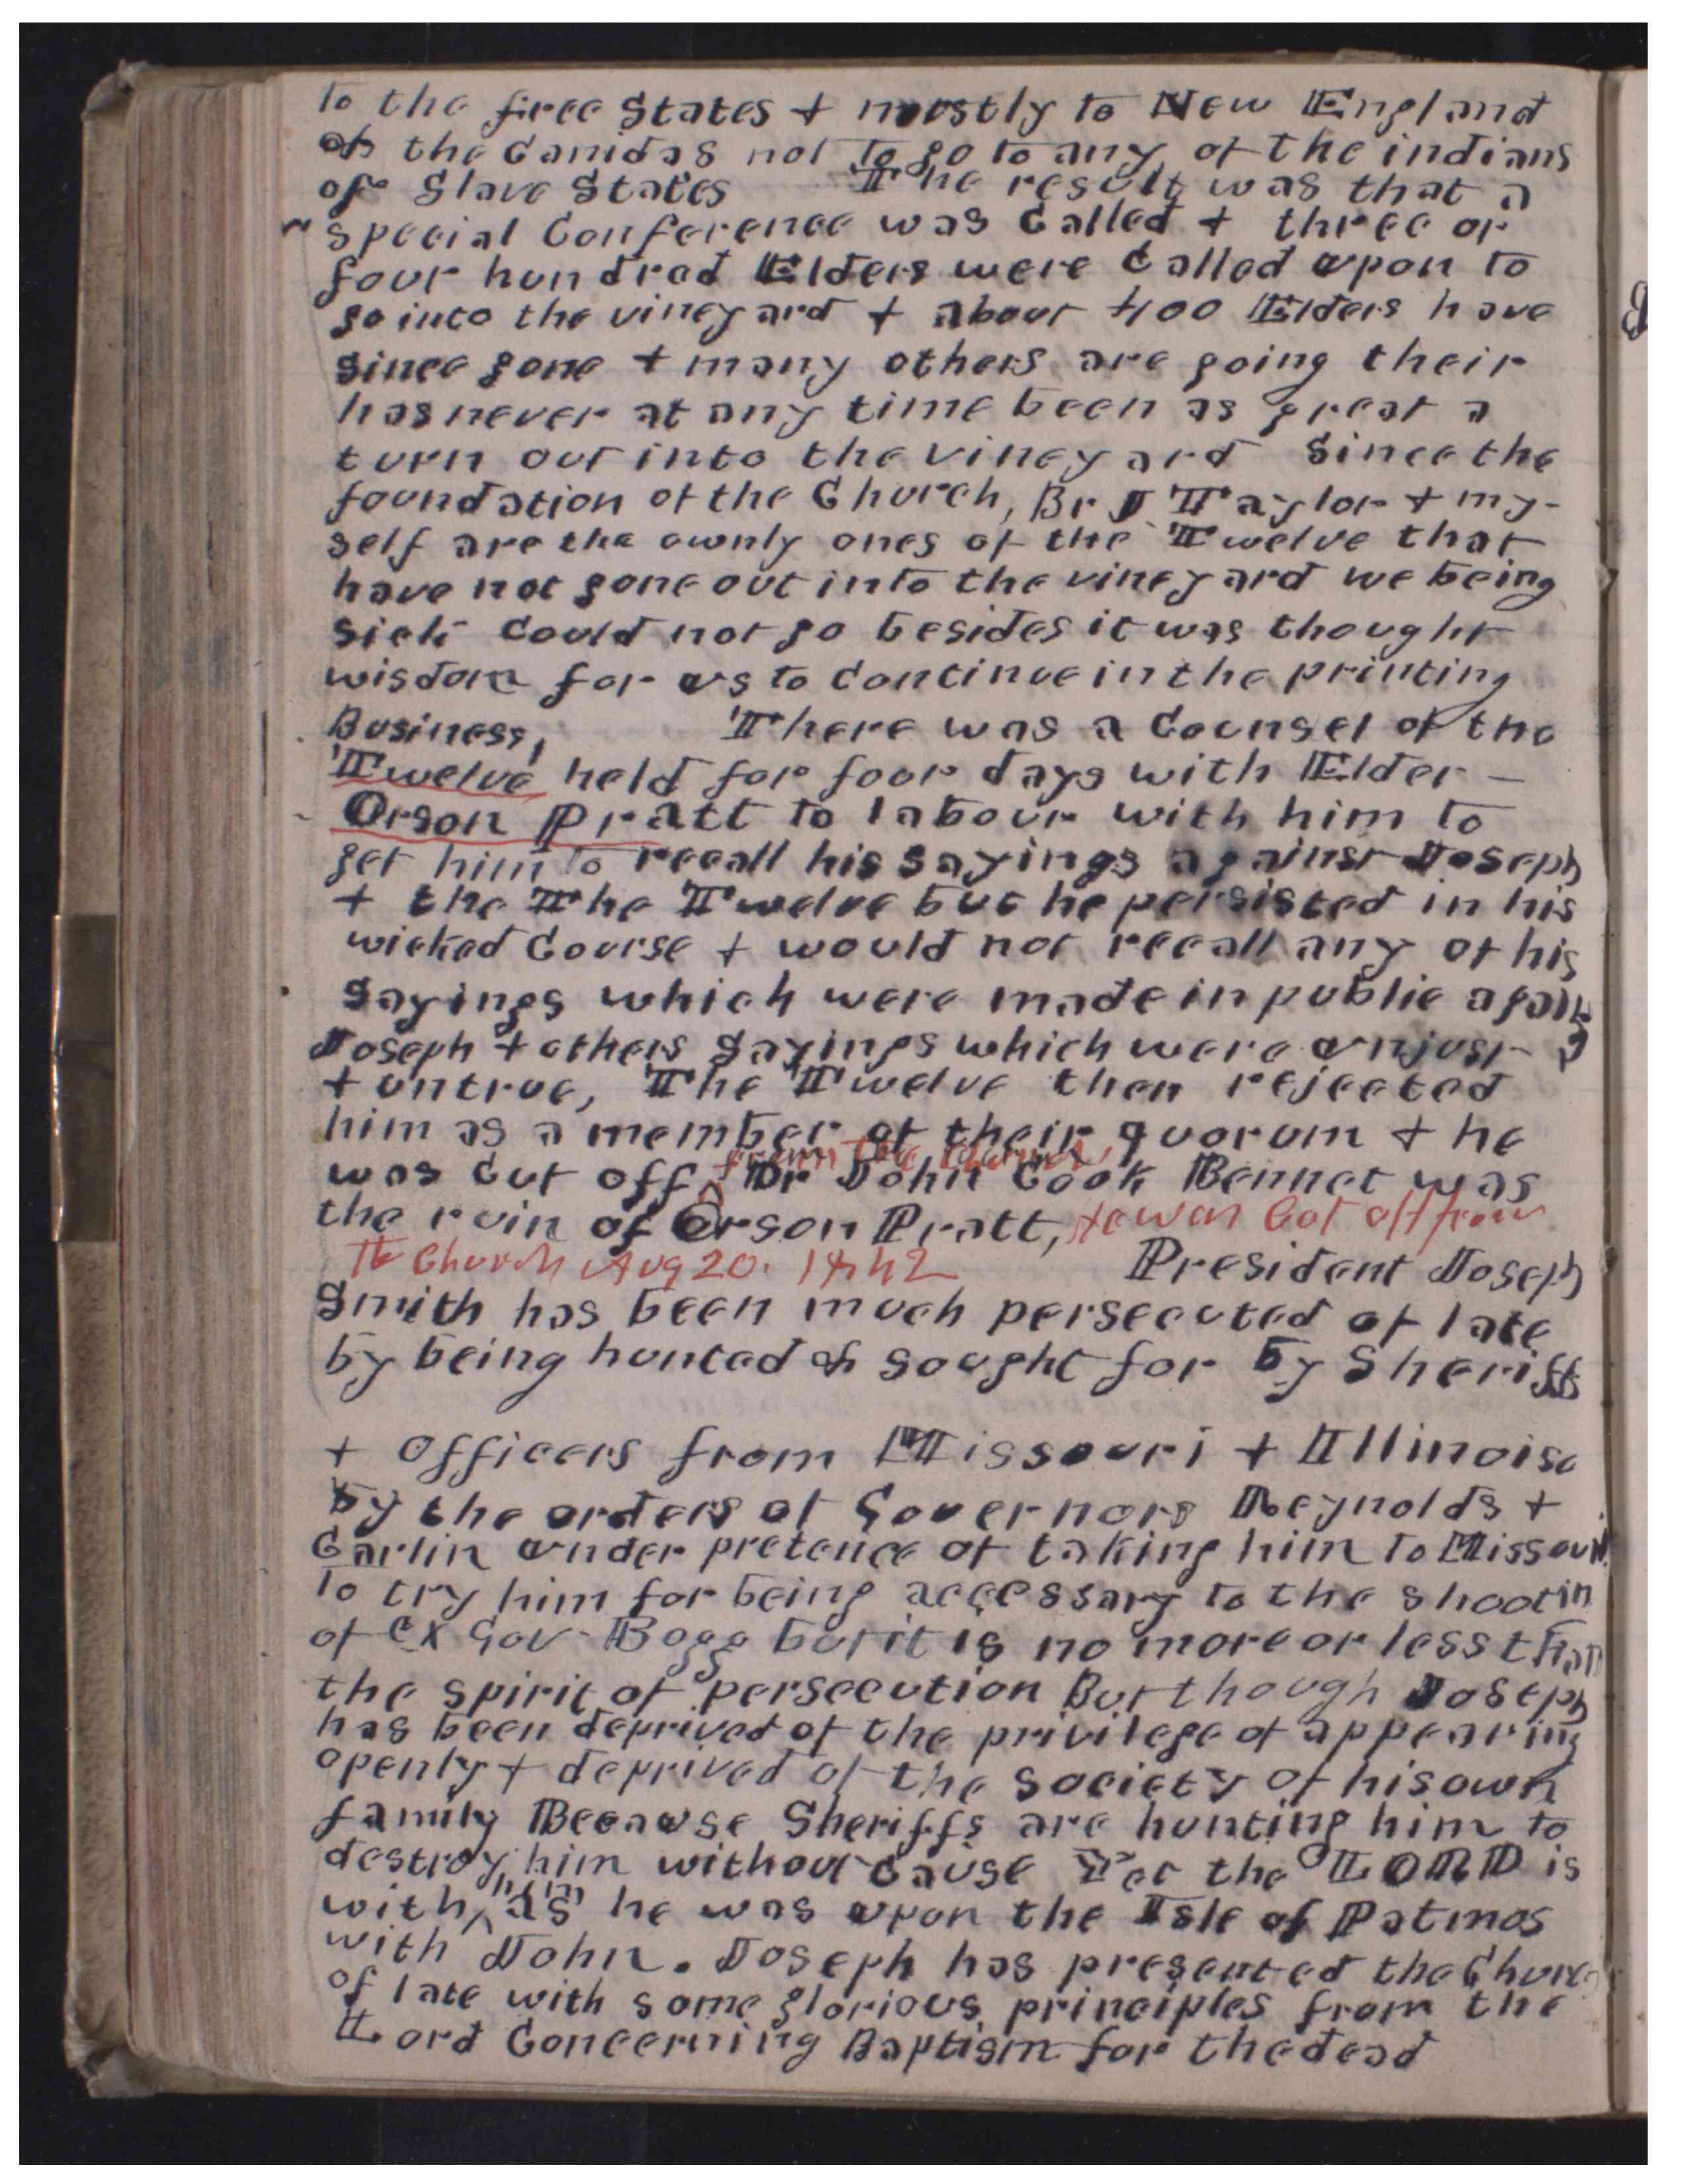 to the free States + moostly to New England
of the Canidas not to go to any of the indians
of Slave States The result was that a
special Conference was Called + three or
four hundred Elders were Called upon to
go into the vineyard + about 400 Elders have
since gone + many others are going their
has never at any time been as great a
turn out into the vineyard since the
foundation of the Church, Br J Taylor + my-
self are the ownly ones of the Twelve that
have not gone out into the vineyard we being
sick Could not go besides it was thought
wisdom for us to Continue in the printing
Business, There was a Counsel of the
Twelve held for four days with Elder -
Orson Pratt to labour with him to
get him to recall his sayings against Joseph
+ the The Twelve but he persisted in his
wicked Course + would not recall any of his
sayings which were made in public against
Joseph + others sayings which were unjust
+ untrue, The Twelve then rejected
him as a member of their quorum + he
from the church,
was cut off, Dr John Cook Bennet was
the ruin of Orson Pratt, He was Cut off from
the Church Aug 20. 1842 President Joseph
Smith has been much persecuted of late
by being hunted & sought for by Sheriffs
+ Officers from Missouri + Illinoise
by the orders of Governors Reynolds +
Carlin under pretence of taking him to Missouri
to try him for being accessary to the shootin
of ex Gov- Bogg but it is no more or less than
the spirit of persecution But though Joseph
has been deprived of the privilege of appearing
openly + deprived of the society of his own
family Because Sheriffs are hunting him to
destroy him without Cause Yet the LORD is
him
with as he was upon the Isle of Patmos
with John. Joseph has presented the Church
of late with some glorious principles from the
Lord Concerning Baptism for the dead